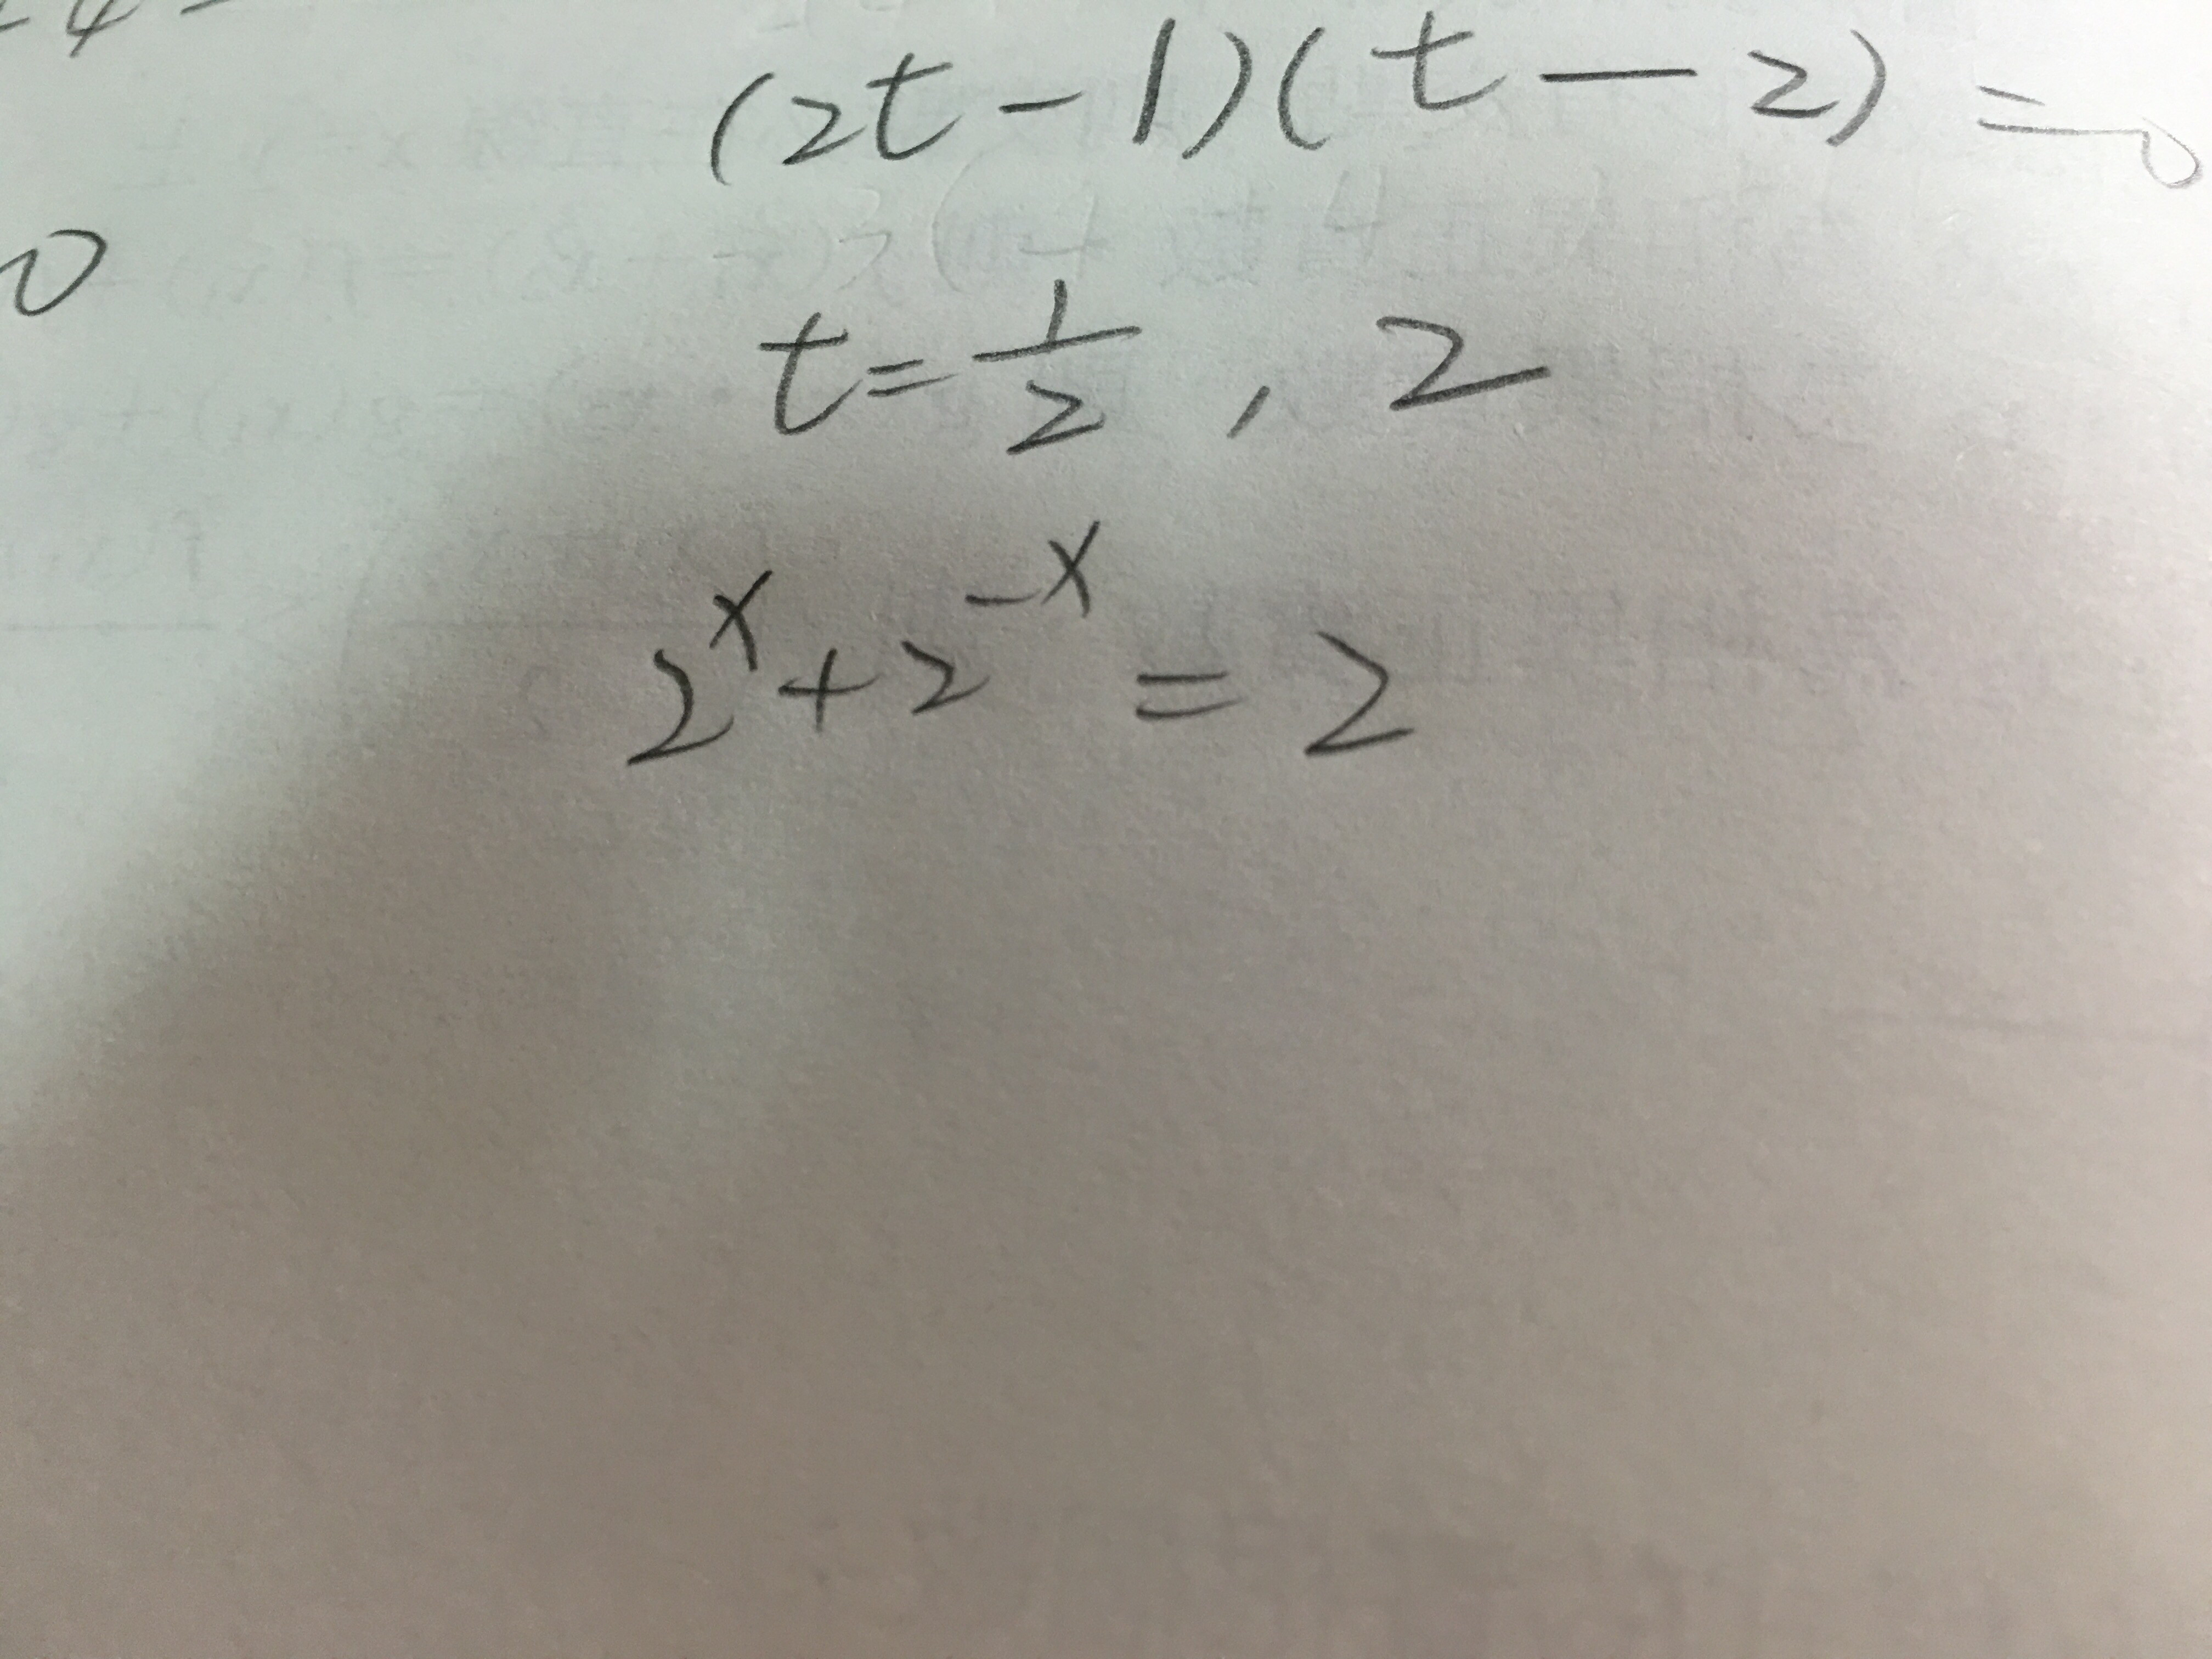 (2t-1)(t-2)=0
0
t=1/2, 2
2^x+2^-x=2